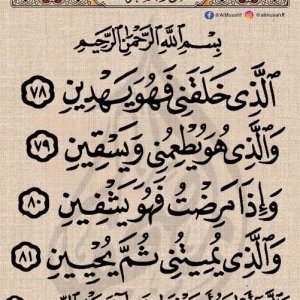 @AlMusahf @almusahff
بِسْمِ اللَّهِ الرَّحْمَٰنِ الرَّحِيمِ
ٱلَّذِى خَلَقَنِى فَهُوَ يَهْدِينِ ٧٨
وَٱلَّذِى هُوَ يُطْعِمُنِى وَيَسْقِينِ ٧٩
وَإِذَا مَرِضْتُ فَهُوَ يَشْفِينِ ٨٠
وَٱلَّذِى يُمِيتُنِى ثُمَّ يُحْيِينِ ٨١